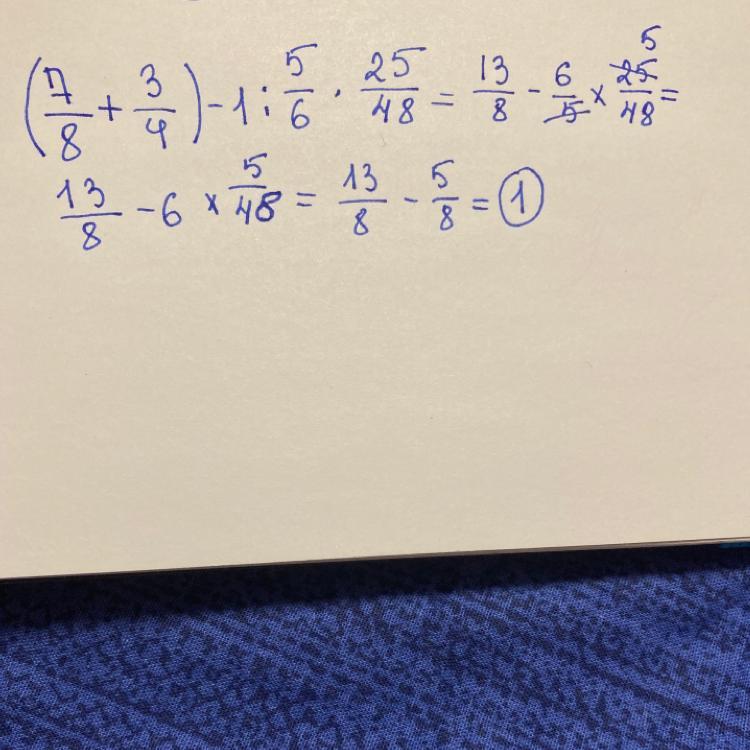 (7/8 + 3/4) - 1 : 5/6 · 25/48 = 13/8 - 6/5 × 25/48 = 5
13/8 - 6 × 5/48 = 13/8 - 5/8 = 1